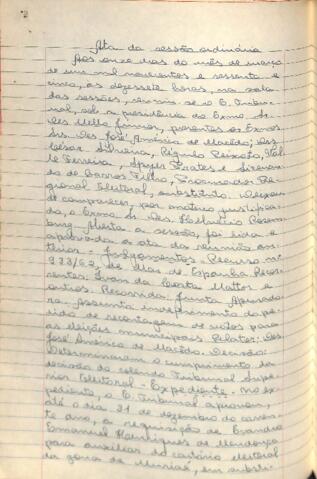 Ata da sessão ordinária
Aos onze dias do mês de março
de um mil novecentos e sessenta e
cinco, às dezessete horas, na sala
das sessões, reuniu-se o E. Tribu-
nal, sob a presidência do Exmo. Sr.
Des. Mello Júnior, presentes os Exmos.
Srs. Des. José Américo de Macêdo, Des.
César Silveira, Régulo Peixoto, Val-
le Ferreira,
de Barros Filho, Procurador Re-
gional Eleitoral, substituto. Deixou
de comparecer, por motivo justifica-
do, o Exmo. Sr. Des.
Aberta a sessão, foi lida e
aprovada a ata da reunião an-
terior. - Julgamentos - Recurso nº
933/62, de Mar de Espanha. Recor-
rentes: Ivan da Costa Mattos e
outros. Recorrida: Junta Apurado-
ra. Assunto: indeferimento de pe-
dido de recontagem de votos para
as eleições municipais. Relator: Des.
José Américo de Macêdo. Decisão:
Determinaram o cumprimento da
decisão do colendo Tribunal Supe-
rior Eleitoral. - Expediente. - No ex-
pediente, o E. Tribunal aprovou,
até o dia 31 de dezembro do corren-
te ano, a requisição de Evandro
Emanuel Henriques de Mendonça
para auxiliar do cartório eleitoral
da zona de Muriaé, em substi-